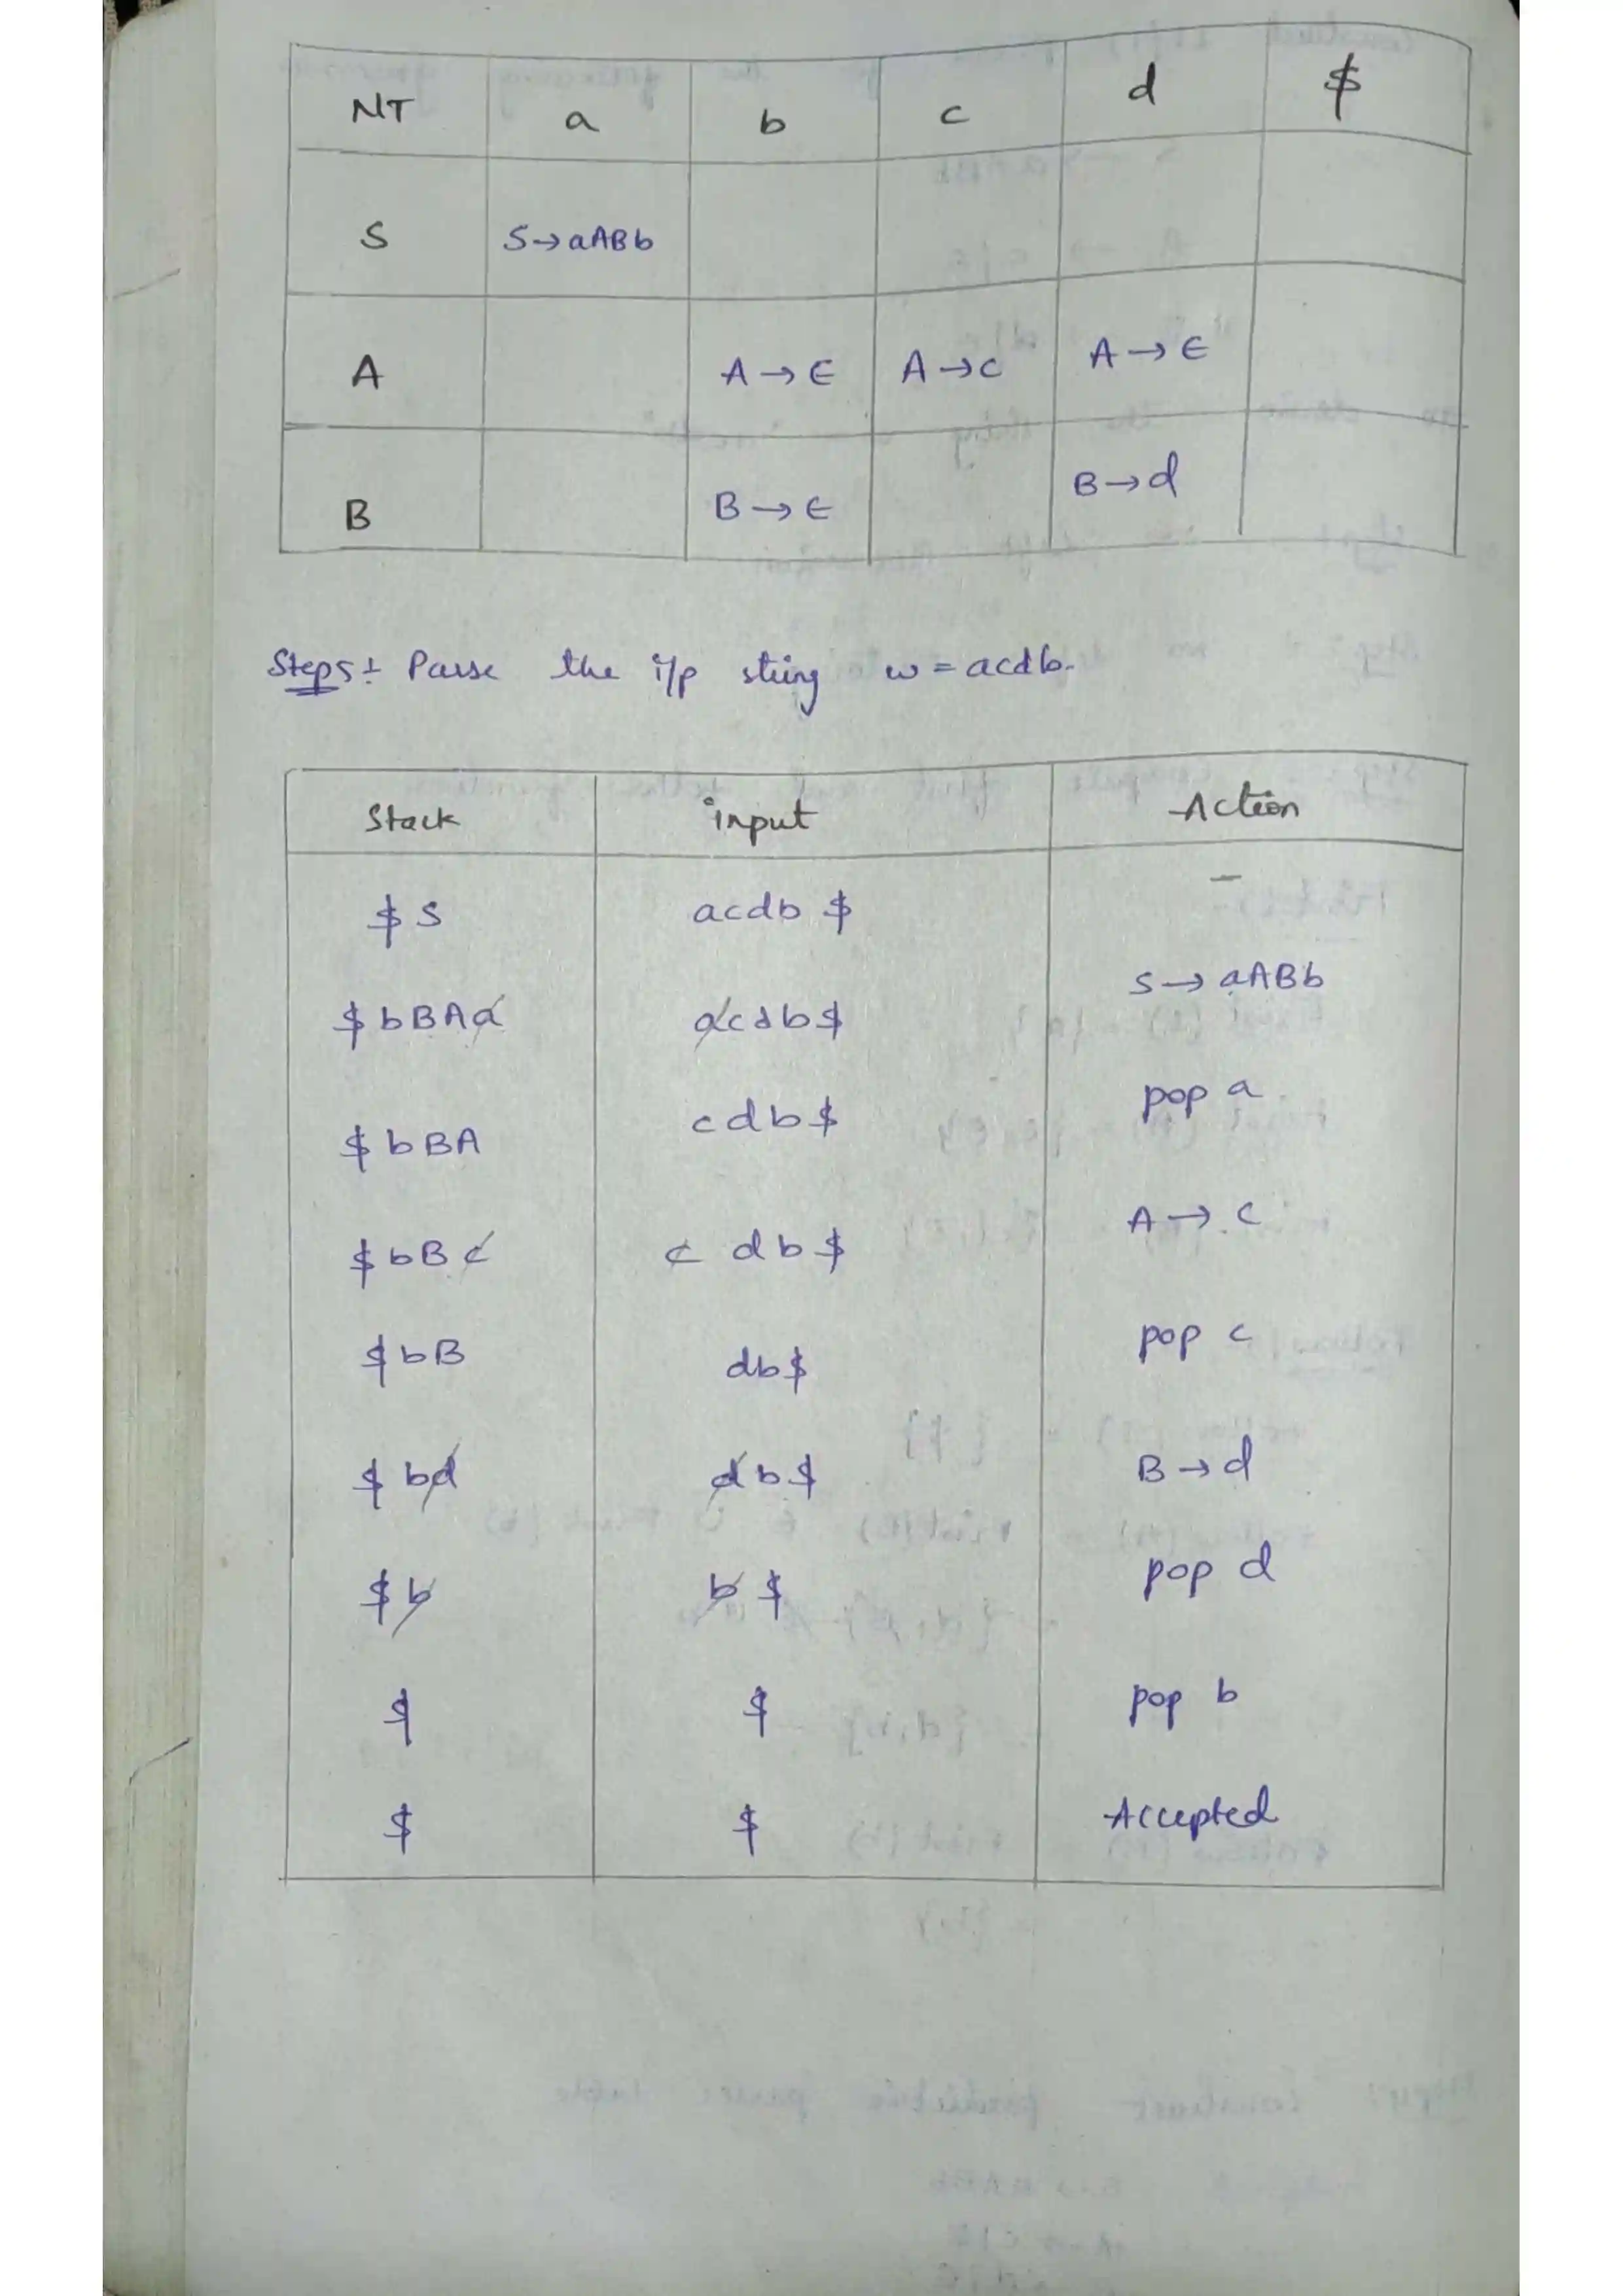 NT a b c d $
S S→aABb
A A→ϵ A→c A→ϵ
B B→ϵ B→d
Step5:- Parse the i/p string w = acdb.
Stack input Action
$ S acdb $ -
$ bBAa acdb$ S→aABb
$ bBA cdb$ pop a
$ bBc c db$ A→c
$ bB db$ pop c
$ bd db$ B→d
$ b b $ pop d
$ $ pop b
$ $ Accepted